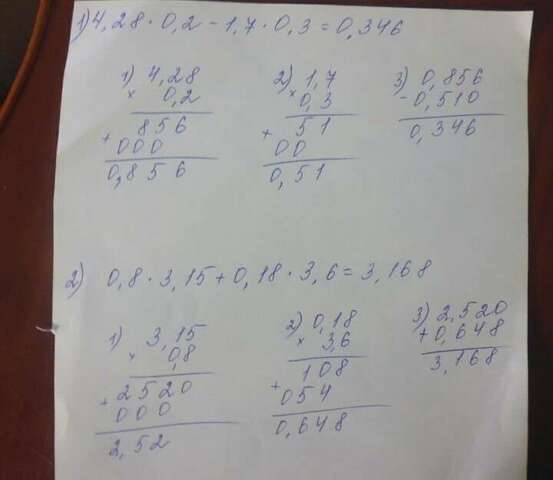 1) 4,28 · 0,2 - 1,7 · 0,3 = 0,346
1) 4,28
× 0,2
856
+ 000
0,856
2) 1,7
× 0,3
51
+ 00
0,51
3) 0,856
- 0,510
0,346
2) 0,8 · 3,15 + 0,18 · 3,6 = 3,168
1) 3,15
× 0,8
+ 2520
000
2,52
2) 0,18
× 3,6
108
+ 054
0,648
3) 2,520
+ 0,648
3,168